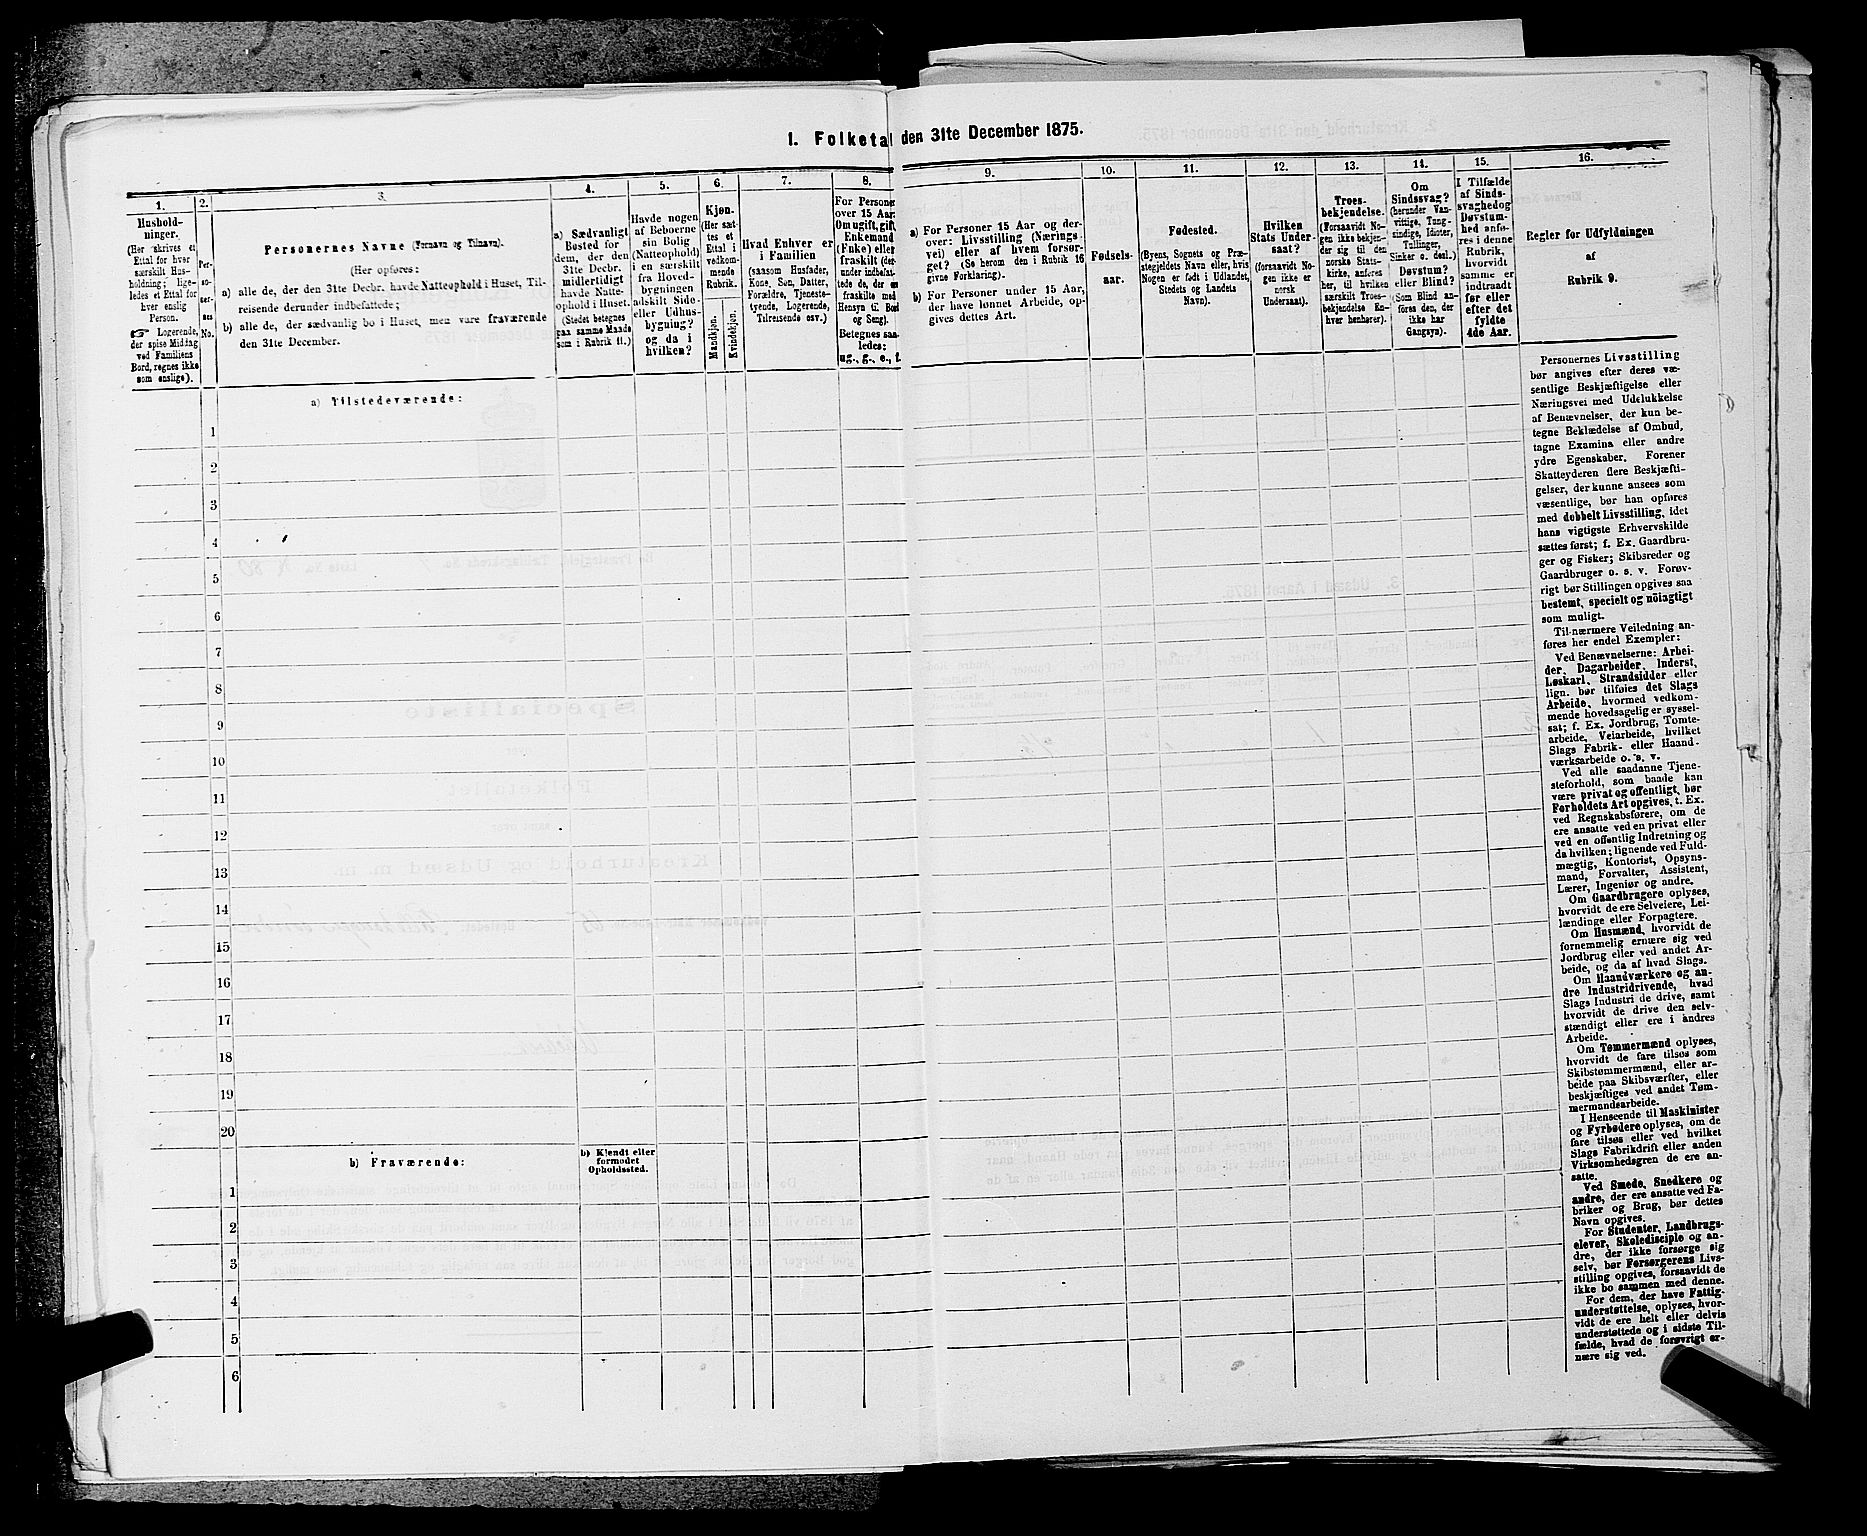 1. Folketal den 31te December 1875.
1.
Hushold-
ninger.
(Her skrives et
Ettal for hver
særskilt Hus-
holdning; lige-
ledes et Ettal for
hver enslig
Person.
☞ Logerende,
der spise Middag
ved Familiens
Bord, regnes ikke
som enslige).
2.
Per-
so-
ner-
nes
No.
3.
Personernes Navne (Fornavn og Tilnavn).
(Her opføres:
a) alle de, der den 31te Decbr. havde Natteophold i Huset, Til-
reisende derunder indbefattede;
b) alle de, der sædvanlig bo i Huset, men vare fraværende
den 31te December.
4.
a) Sædvanligt
Bosted for
dem, der den
31te Decbr.
midlertidigt
havde Natte-
ophold i Huset.
(Stedet betegnes
paa samme Maade
som i Rubrik 11.)
5.
Havde nogen
af Beboerne
sin Bolig
(Natteophold)
i en særskilt
fra Hoved-
bygningen
adskilt Side-
eller Udhus-
bygning?
og da i
hvilken?
6.
Kjøn.
(Her sæt-
tes et
Ettal i
vedkom-
mende
Rubrik.
Mandkjøn.
Kvindekjøn.
7.
Hvad Enhver er
i Familien
(saasom Husfader,
Kone, Søn, Datter,
Forældre, Tjeneste-
tyende, Logerende,
Tilreisende osv.)
8.
For Personer
over 15 Aar:
Om ugift, gift,
Enkemand
(Enke) eller
fraskilt (der-
under indbefat-
tede de, der er
fraskilte med
Hensyn til Bord
og Seng).
Betegnes saa-
ledes:
ug., g., e., f.
9.
a) For Personer 15 Aar og der-
over: Livsstilling (Nærings-
vei) eller af hvem forsør-
get? (Se herom den i Rubrik 16
givne Forklaring).
b) For Personer under 15 Aar,
der have lønnet Arbeide, op-
gives dettes Art.
10.
Fødsels-
aar.
11.
Fødested.
(Byens, Sognets og Præ-
stegjeldets Navn eller, hvis
Nogen er født i Udlandet,
Stedets og Landets
Navn).
12.
Hvilken
Stats Under-
saat?
(forsaavidt No-
gen ikke er
norsk
Undersaat).
13.
Troes-
bekjendelse.
(Forsaavidt No-
gen ikke bekjen-
der sig til den
norske Stats-
kirke, anføres
her, til hvilken
særskilt Troes-
bekjendelse En-
hver henhører).
14.
Om
Sindssvag?
(herunder Van-
vittige, Tung-
sindige, Idioter,
Tullinger,
Sinker o. desl.)
Døvstum?
eller Blind?
(Som Blind an-
føres den, der
ikke har
Gangsyn).
15.
I Tilfælde
af Sinds-
svaghed og
Døvstum-
hed anfø-
res i denne
Rubrik,
hvorvidt
samme er
indtraadt
før eller
efter det
fyldte
4de Aar.
16.
Regler for Udfyldningen
af
Rubrik 9.
a) Tilstedeværende:
1
2
3
4
5
6
7
8
9
10
11
12
13
14
15
16
17
18
19
20
b) Fraværende:
b) Kjendt eller
formodet
Opholdssted.
1
2
3
4
5
6
Personernes Livsstilling
bør angives efter deres væ-
sentlige Beskjæftigelse eller
Næringsvei med Udelukkelse
af Benævnelser, der kun be-
tegne Beklædelse af Ombud,
tagne Examina eller andre
ydre Egenskaber. Forener
Skatteyderen flere Beskjæfti-
gelser, der kunne ansees som
væsentlige, bør han opføres
med dobbelt Livsstilling, idet
hans vigtigste Erhvervskilde
sættes først; f. Ex. Gaardbru-
ger og Fisker; Skibsreder og
Gaardbruger o. s. v. Forøv-
rigt bør Stillingen opgives saa
bestemt, specielt og nöiagtigt
som muligt.
Til nærmere Veiledning an-
føres her endel Exempler:
Ved Benævnelserne: Arbei-
der, Dagarbeider, Inderst,
Løskarl, Strandsidder eller
lign. bør tilføies det Slags
Arbeide, hvormed vedkom-
mende hovedsagelig er syssel-
sat; f. Ex. Jordbrug, Tomte-
arbeide, Veiarbeide, hvilket
Slags Fabrik- eller Haand-
værksarbeide o. s. v.
Ved alle saadanne Tjene-
steforhold, som baade kan
være privat og offentligt, bør
Forholdets Art opgives, t. Ex.
ved Regnskabsførere, om de
ere ansatte ved en privat eller
ved en offentlig Indretning og
da hvilken; lignende ved Fuld-
mægtig, Kontorist, Opsyns-
mand, Forvalter, Assistent,
Lærer, Ingeniør og andre.
Om Gaardbrugere oplyses,
hvorvidt de ere Selveiere, Lei-
lændinge eller Forpagtere.
Om Husmænd, hvorvidt de
fornemmelig ernære sig ved
Jordbrug eller ved andet Ar-
beide, og da af hvad Slags.
Om Haandværkere og an-
dre Industridrivende, hvad
Slags Industri de drive, samt
hvorvidt de drive den selv-
stændigt eller ere i andres
Arbeide.
Om Tømmermænd oplyses,
hvorvidt de fare tilsøs som
Skibstømmermænd, eller ar-
beide paa Skibsværfter, eller
beskjæftiges ved andet Tøm-
mermandsarbeide.
I Henseende til Maskinister
og Fyrbødere oplyses, om de
fare tilsøs eller ved hvilket
Slags Fabrikdrift eller anden
Virksomhedsgren de ere an-
satte.
Ved Smede, Snedkere og
andre, der ere ansatte ved Fa-
briker og Brug, bør dettes
Navn opgives.
For Studenter, Landbrugs-
elever, Skoledisciple og an-
dre, der ikke forsørge sig
selv, bør Forsørgerens Livs-
stilling opgives, forsaavidt de
ikke bo sammen med denne.
For dem, der have Fattig-
understøttelse, oplyses, hvor-
vidt de ere helt eller delvis
understøttede og i sidste Til-
fælde, hvad de forøvrigt er-
nære sig ved.